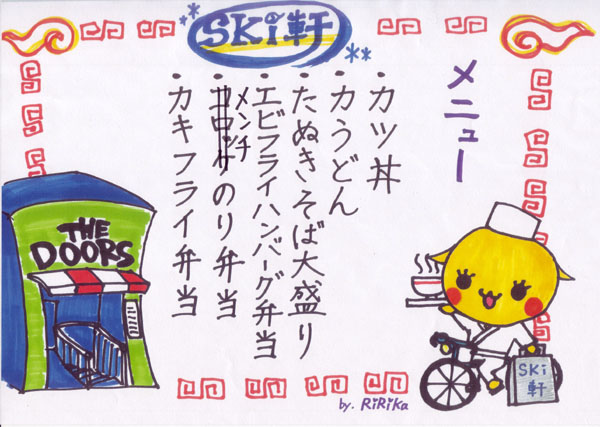 SKi軒
メニュー
・カツ丼
・力うどん
・たぬきそば大盛り
・エビフライハンバーグ弁当
・メンチのり弁当
・カキフライ弁当
THE DOORS
SKi
軒
by. RiRiKa